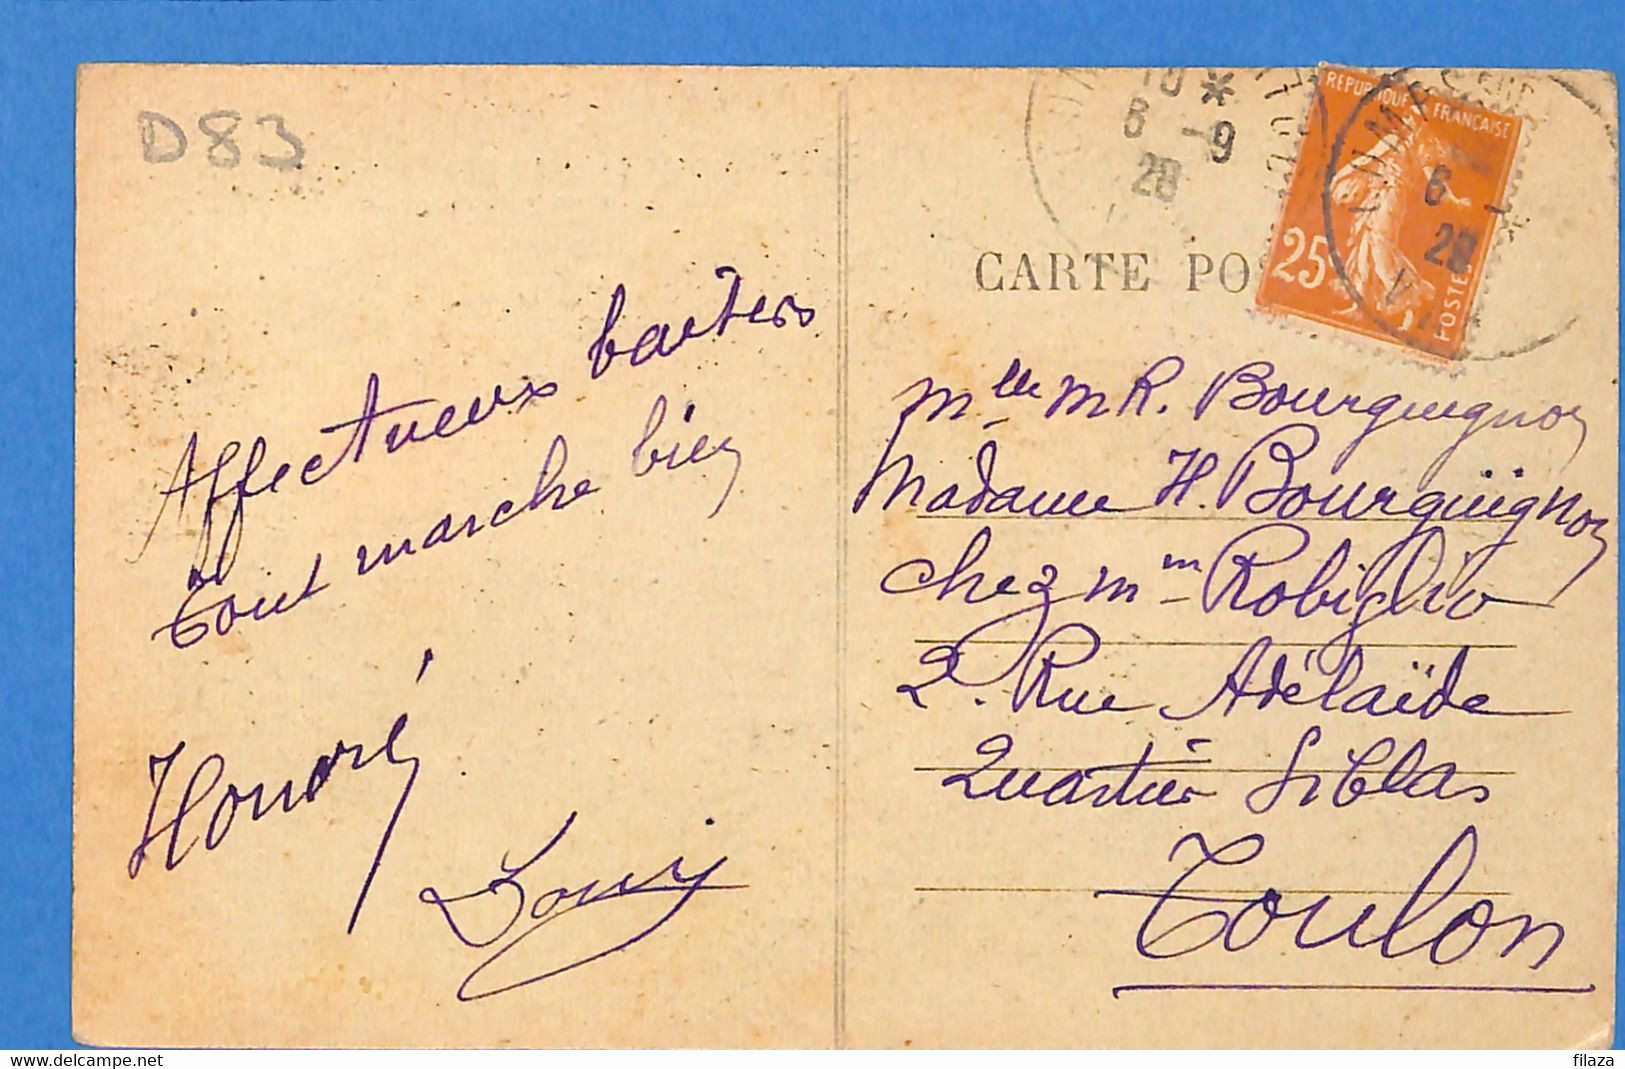 D83
Affectueux baisers
tout marche bien
Honoré
Louis
CARTE PO
REPUBLIQUE FRANÇAISE
25
POSTES
19 *
6 -9
28
6
28
Mlle M R. Bourguignon
Madame H. Bourguignon
chez Mm Robiglio
2. Rue Adélaïde
Quartier Siblas
Toulon
delcampe.net
filaza